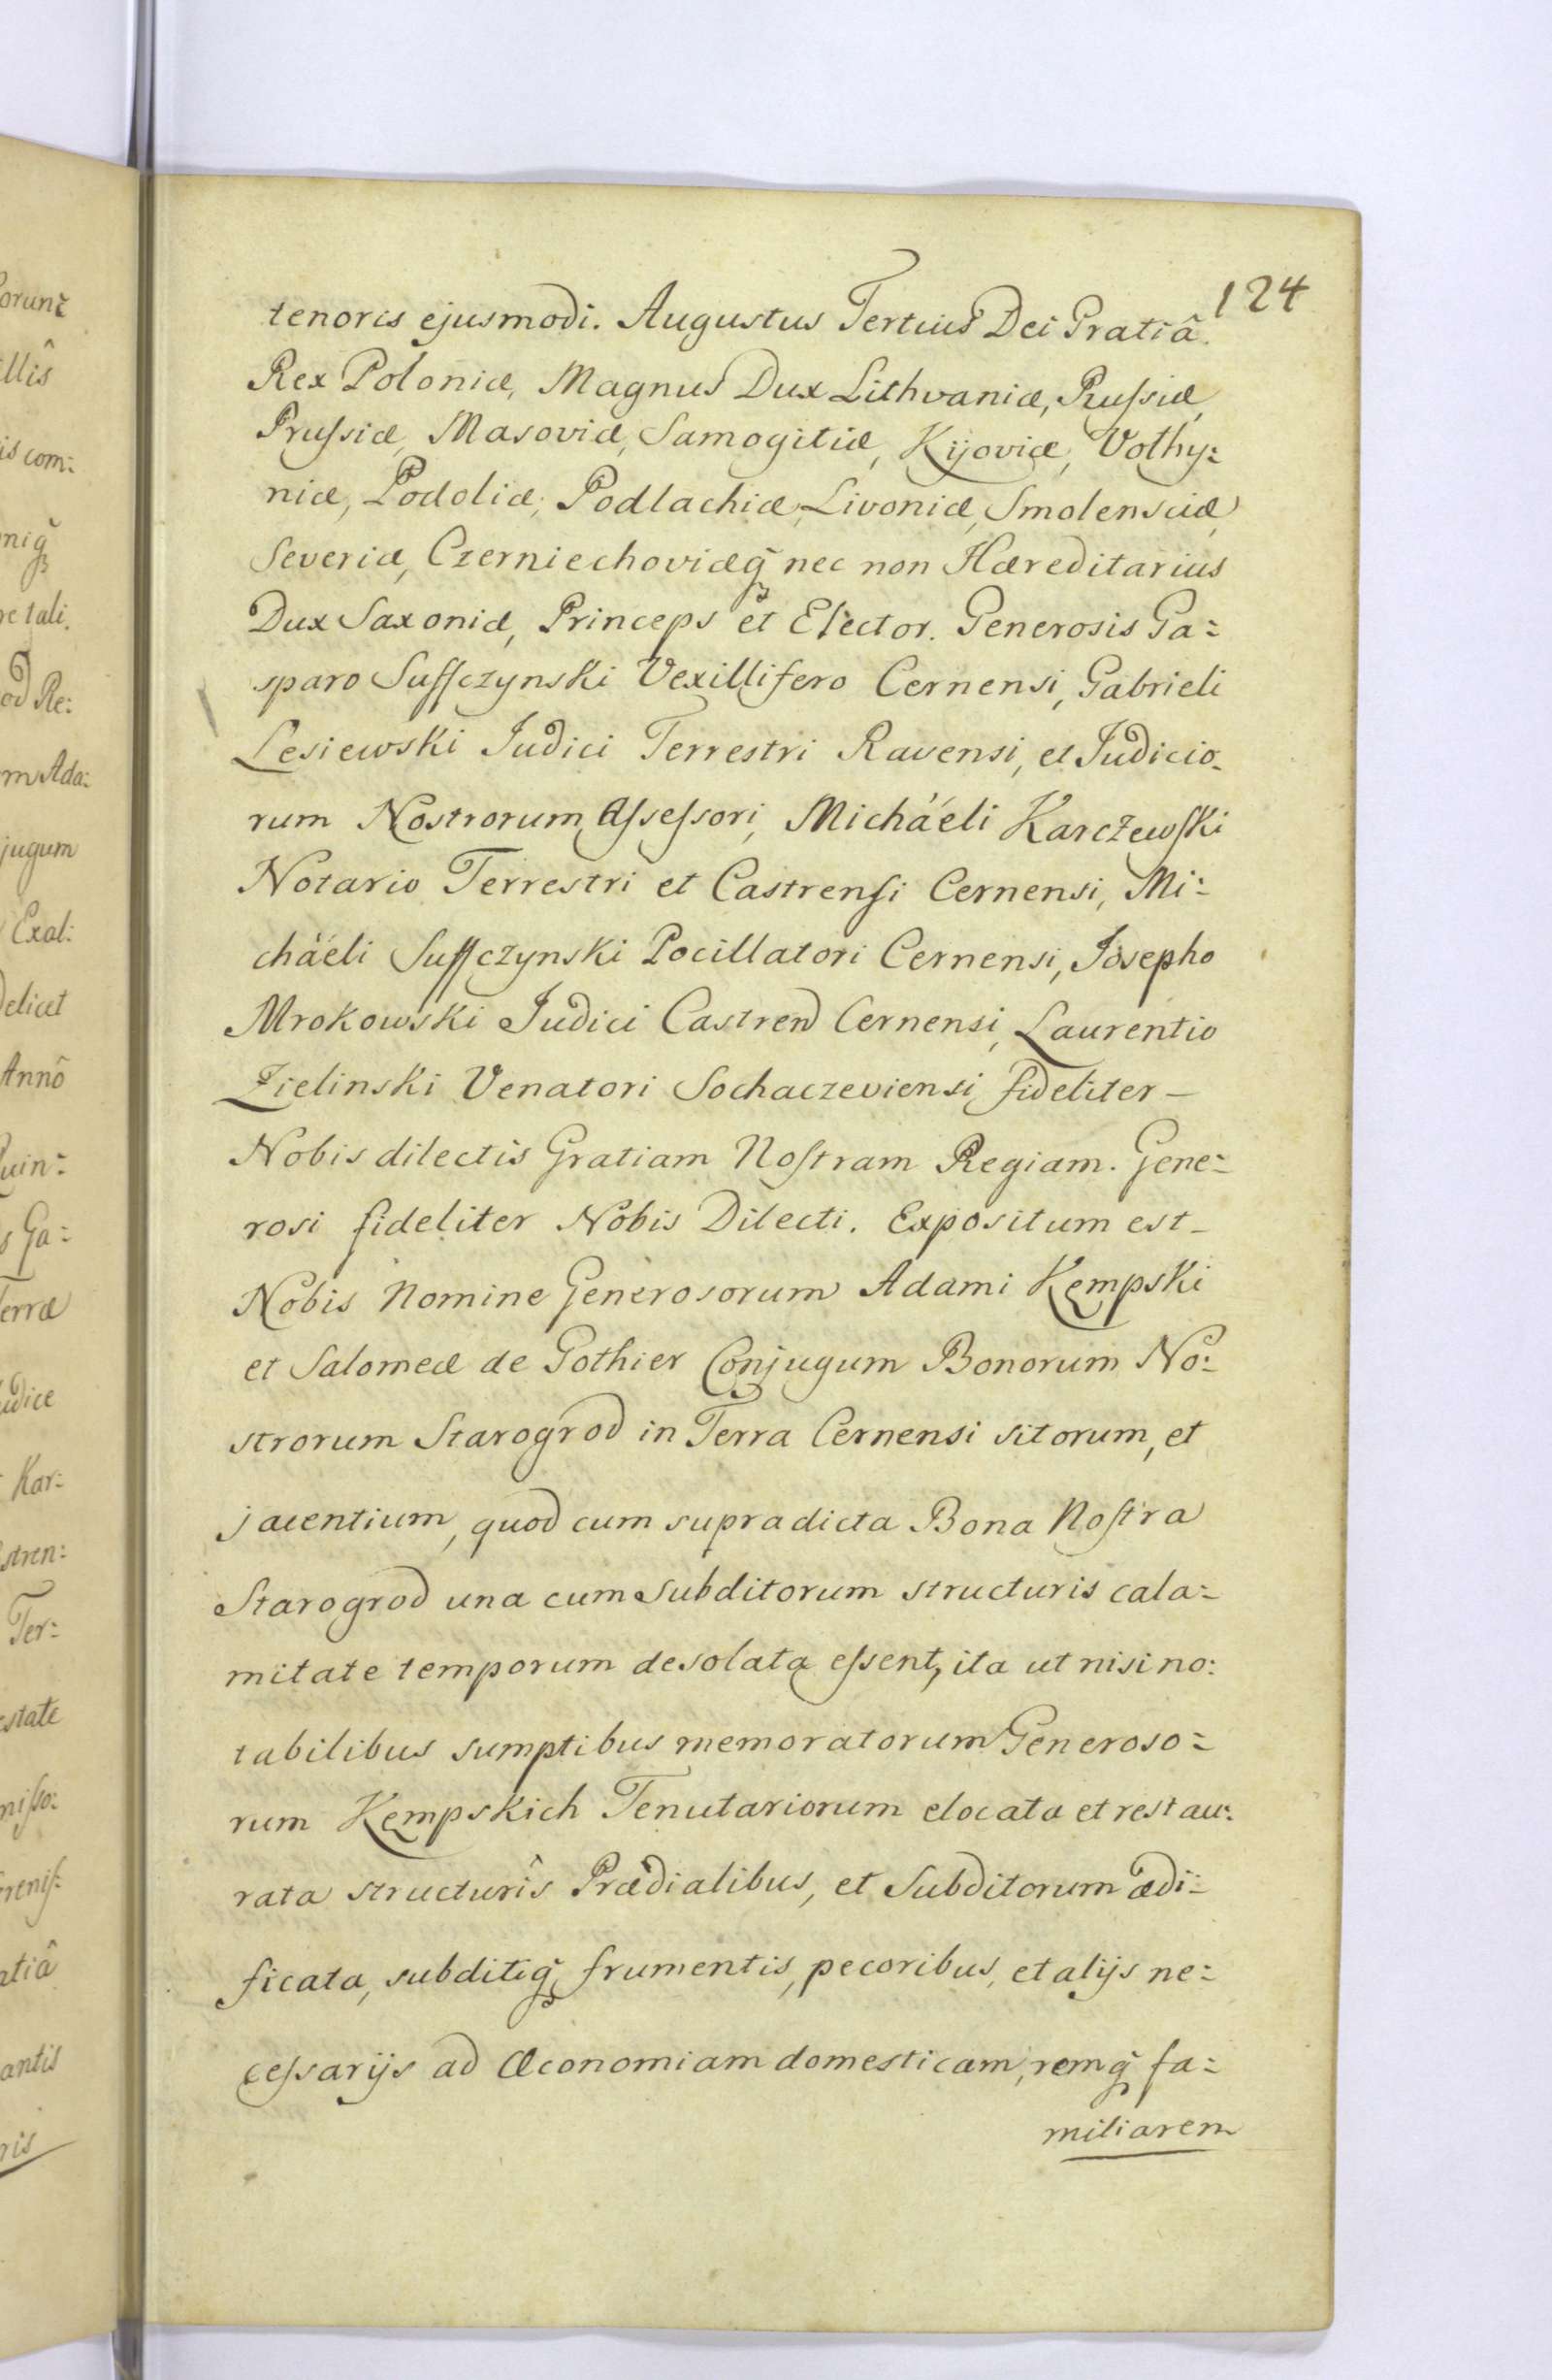 124
tenoris ejusmodi. Augustus Tertius Dei Gratiâ.
Rex Poloniæ, Magnus Dux Lithvaniæ, Ruſsiæ,
Pruſsiæ, Masoviæ, Samogitiæ, Kijoviæ, Volhy:
niæ, Podoliæ, Podlachiæ, Livoniæ, Smolensciæ,
Severiæ, Czerniechoviæq̃ nec non Hæreditarius
Dux Saxoniæ, Princeps et Elector. Generosis Ga:
sparo Suffczynski Vexillifero Cernensi, Gabrieli
Lesiewski Judici Terrestri Ravensi, et Judicio-
rum Nostrorum Aſseſsori, Michaéli Karczewſki
Notario Terrestri et Castrenſi Cernensi, Mi:
chaéli Suffczynski Pocillatori Cernensi, Josepho
Mrokowski Judici Castren̄ Cernensi, Laurentio
Zielinski Venatori Sochaczeviensi, fideliter –
Nobis dilectis Gratiam Noſtram Regiam. Gene:
rosi fideliter Nobis Dilecti. Expositum est –
Nobis Nomine Generosorum Adami Kęmpski
et Salomeæ de Gothier Conjugum Bonorum No:
strorum Starogrod in Terra Cernensi sitorum, et
jacentium, quod cum supradicta Bona Noſtra
Starogrod una cum Subditorum structuris cala:
mitate temporum desolata eſsent, ita ut nisi no:
tabilibus sumptibus memoratorum Generoso:
rum Kęmpskich Tenutariorum elocata et restau:
rata structurîs Prædialibus, et Subditorum ædi:
ficata, subditiq̃ frumentis, pecoribus, et alijs ne:
ceſsarijs ad Œconomiam domesticam, remq̃ fa:
miliarem